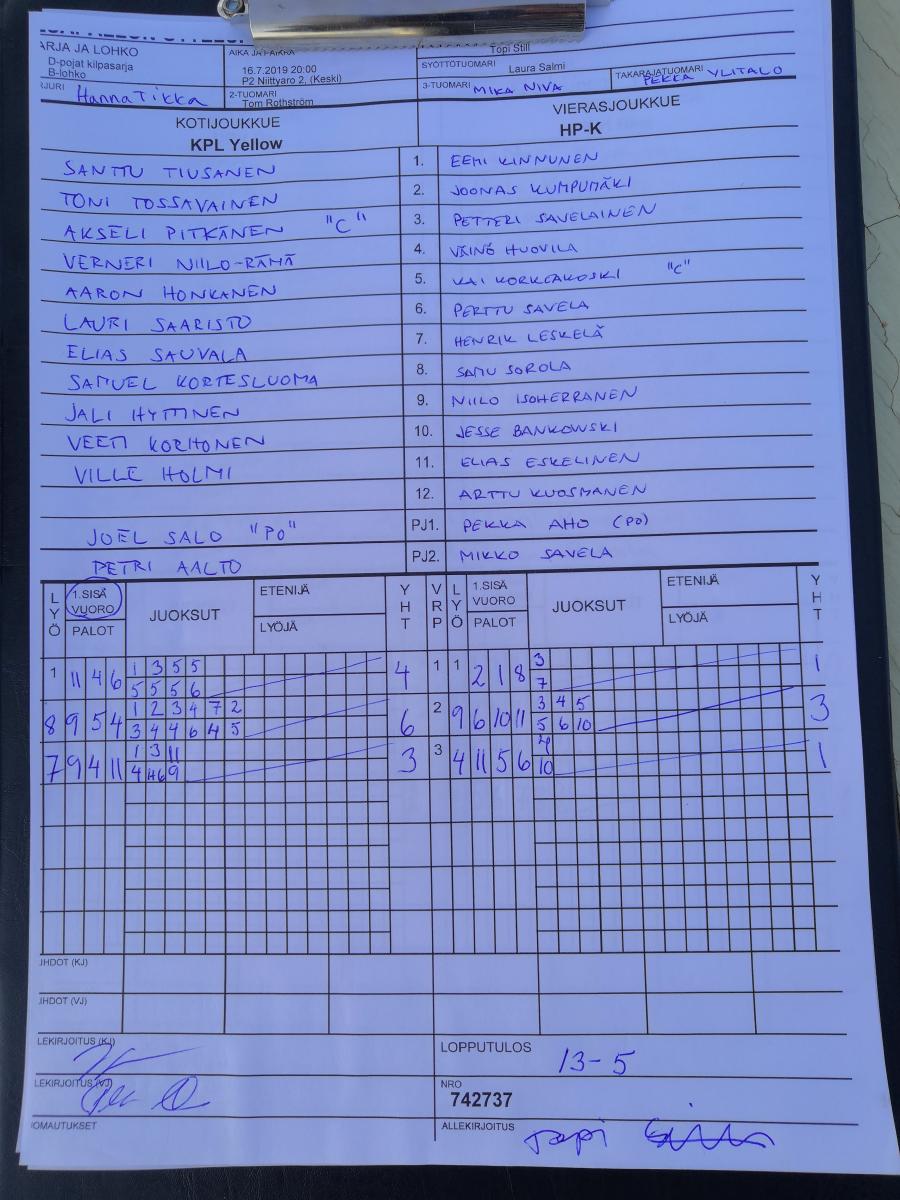 ARJA JA LOHKO
D-pojat kilpasarja
B-lohko
AIKA JA PAIKKA
16.7.2019 20:00
P2 Niittyaro 2, (Keski)
Topi Still
SYÖTTÖTUOMARI
Laura Salmi
JURI Hanna Tikka
2-TUOMARI
Tom Rothström
3-TUOMARI MIKA NIVA
TAKARAJATUOMARI
PEKKA YLITALO
KOTIJOUKKUE
KPL Yellow
VIERASJOUKKUE
HP-K
SANTTU TIUSANEN 1. EEMI KINNUNEN
TONI TOSSAVAINEN 2. JOONAS KUMPUMÄKI
AKSELI PITKÄNEN "C" 3. PETTERI SAVELAINEN
VERNERI NIILO-RÄMÄ 4. VÄINÖ HUOVILA
AARON HONKANEN 5. KAI KORKEAKOSKI "C"
LAURI SAARISTO 6. PERTTU SAVELA
ELIAS SAUVALA 7. HENRIK LESKELÄ
SAMUEL KORTESLUOMA 8. SAMU SOROLA
JALI HYTTINEN 9. NIILO ISOHERRANEN
VEETI KORHONEN 10. JESSE BANKOWSKI
VILLE HOLMI 11. ELIAS ESKELINEN
12. ARTTU KUOSMANEN
JOEL SALO "PO" PJ1. PEKKA AHO (PO)
PETRI AALTO PJ2. MIKKO SAVELA
LYÖ 1.SISÄ VUORO PALOT JUOKSUT ETENIJÄ LYÖJÄ YHT VRP LYÖ 1.SISÄ VUORO PALOT JUOKSUT ETENIJÄ LYÖJÄ YHT
1 11 4 6 1 3 5 5 4 1 1 2 1 8 3 1
5 5 5 6 7
8 9 5 4 1 2 3 4 7 2 6 2 9 6 10 11 3 4 5 3
3 4 4 6 4 5 5 6 10
7 9 4 11 1 3 11 3 3 4 11 5 6 4 1
4 4 6 9 10
JHDOT (KJ)
JHDOT (VJ)
LEKIRJOITUS (KJ)
LOPPUTULOS 13-5
LEKIRJOITUS (VJ)
NRO
742737
OMAUTUKSET
ALLEKIRJOITUS Topi Still